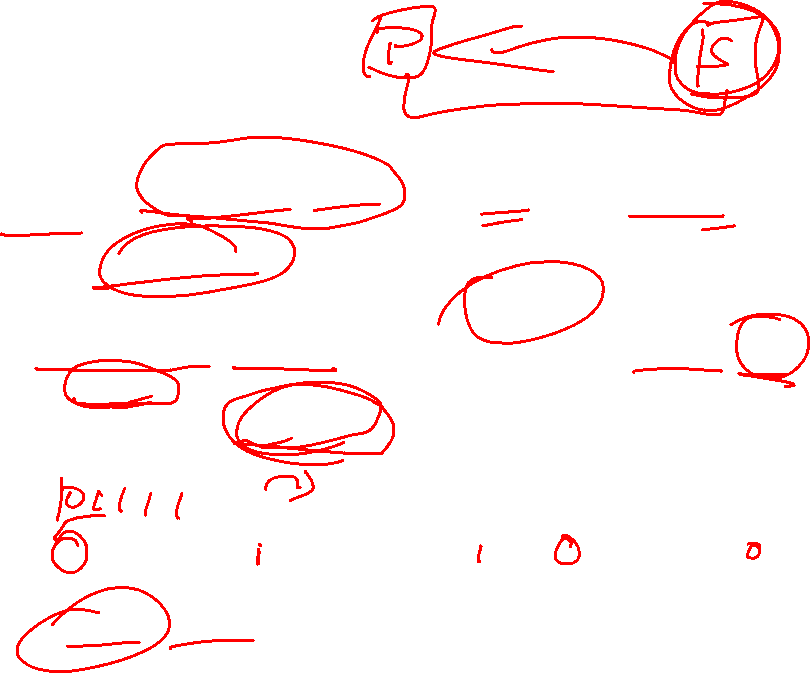 P S
0 1 1 1 1
0 1 1 0 0